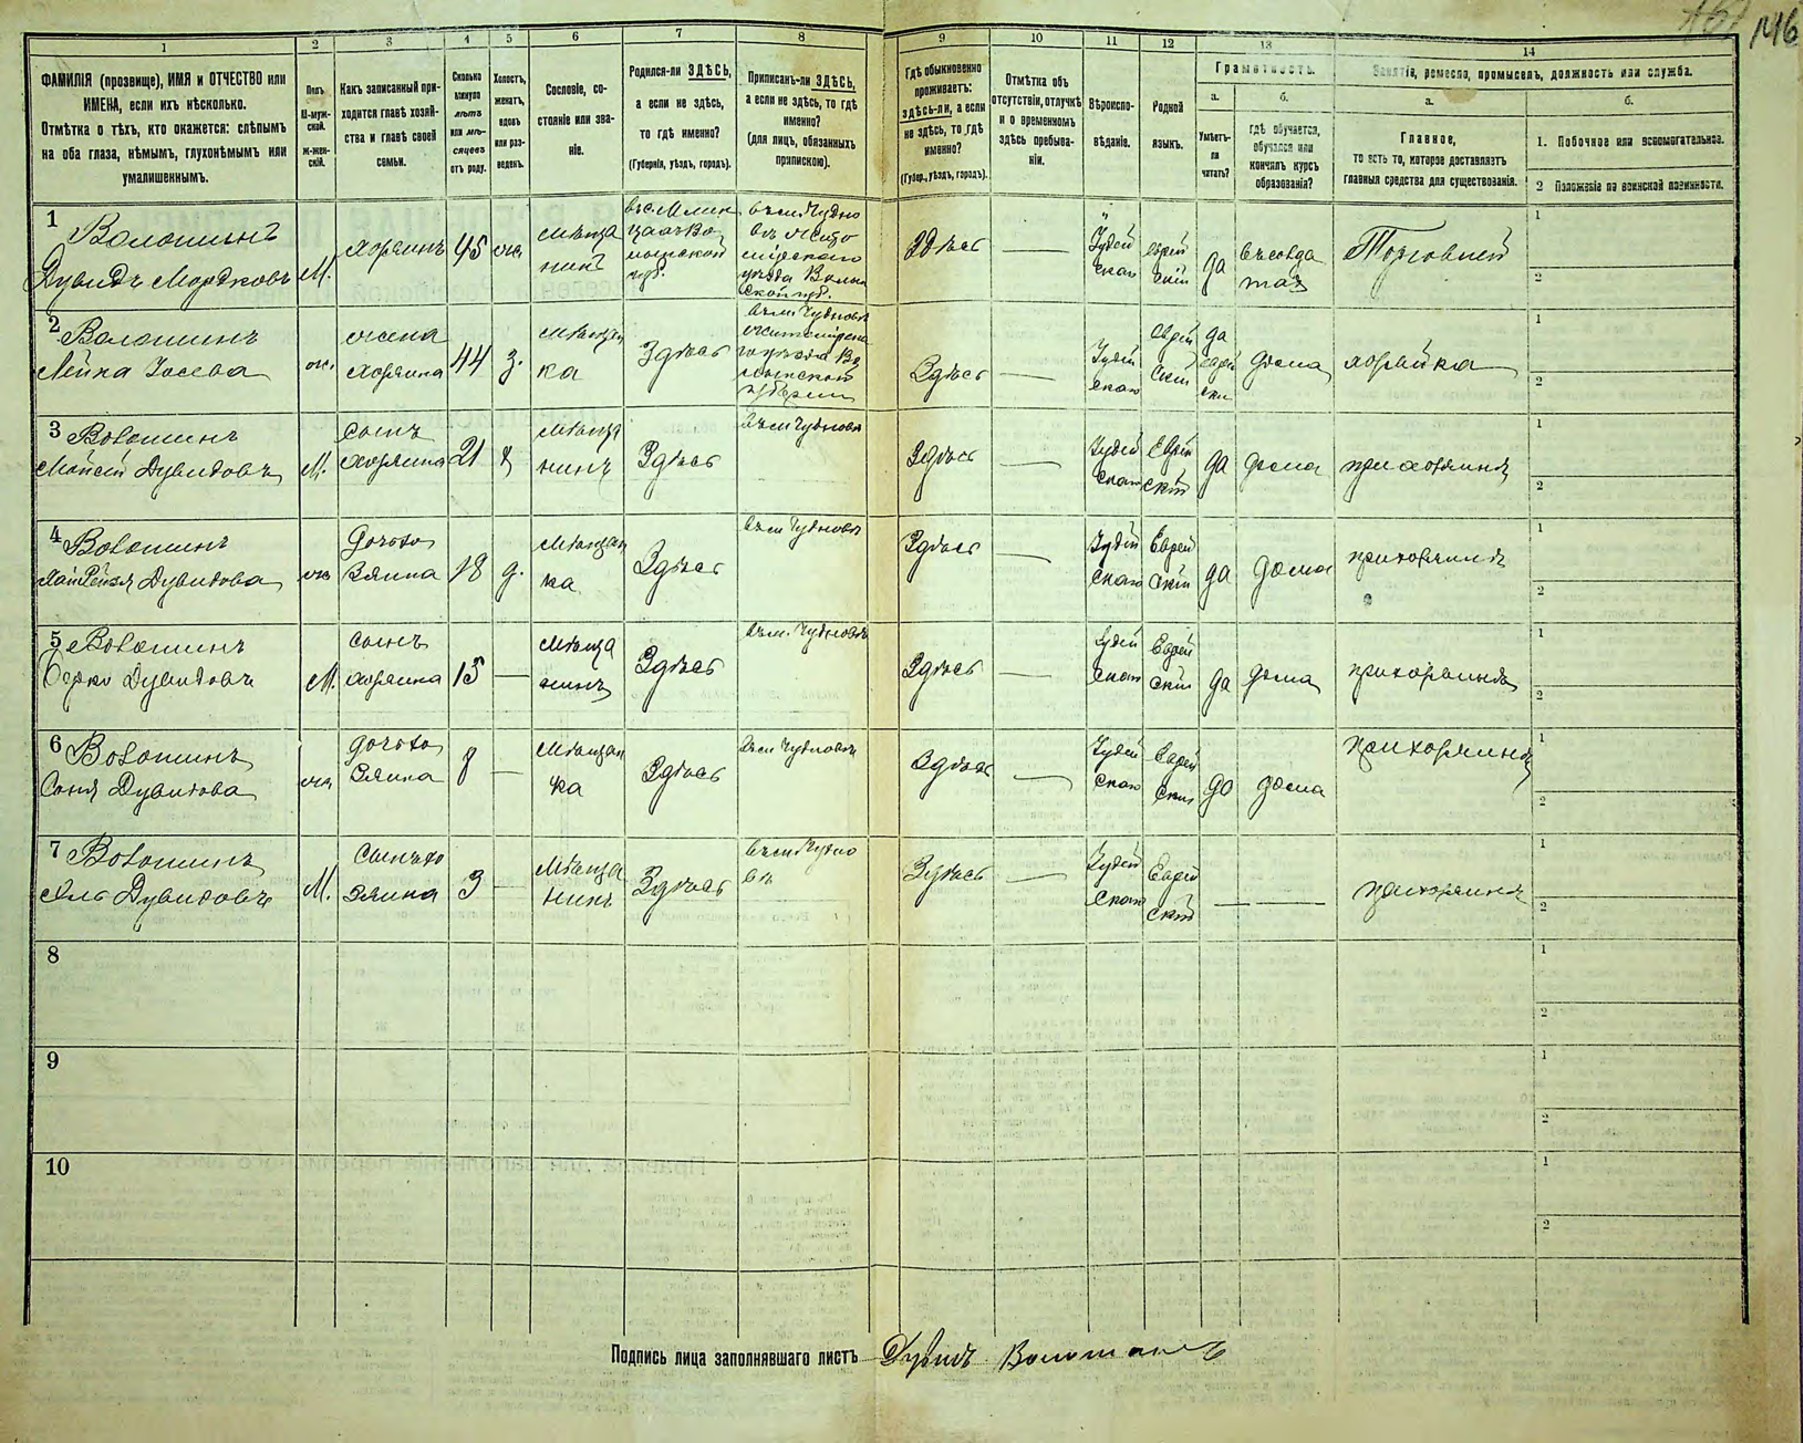 146
1 2 3 4 5 6 7 8 9 10 11 12 13 14
ФАМИЛІЯ (прозвище), ИМЯ и ОТЧЕСТВО или
ИМЕНА, если ихъ нѣсколько.
Отмѣтка о тѣхъ, кто окажется: слѣпымъ
на оба глаза, нѣмымъ, глухонѣмымъ или
умалишеннымъ.
Полъ
М-муж-
ской.
ж-жен-
скій.
Какъ записанный при-
ходится главѣ хозяй-
ства и главѣ своей
семьи.
Сколько
минуло
лѣтъ
или мѣ-
сяцевъ
отъ роду.
Холостъ,
женатъ,
вдовъ
или раз-
веденъ.
Сословіе, со-
стояніе или зва-
ніе.
Родился-ли ЗДѢСЬ,
а если не здѣсь,
то гдѣ именно?
(Губернія, уѣздъ, городъ).
Приписанъ-ли ЗДѢСЬ,
а если не здѣсь, то гдѣ
именно?
(для лицъ, обязанныхъ
припискою).
Гдѣ обыкновенно
проживаетъ:
здѣсь-ли, а если
не здѣсь, то гдѣ
именно?
(Губер., уѣздъ, городъ).
Отмѣтка объ
отсутствіи, отлучкѣ
и о временномъ
здѣсь пребыва-
ніи.
Вѣроиспо-
вѣданіе.
Родной
языкъ.
Грамотность.
а.
Умѣетъ-
ли
читать?
б.
гдѣ обучается,
обучался или
кончилъ курсъ
образованія?
Занятіе, ремесло, промыселъ, должность или служба.
а.
Главное,
то есть то, которое доставляетъ
главныя средства для существованія.
б.
1. Побочное или вспомогательное.
2 Положеніе по воинской повинности.
1 Волошинъ
Дувидъ Мордковъ
М.
хозяинъ
45
же
Мѣща
нинъ
въ м. Чудно
Здѣсь
—
Іудей
ское
еврей
скій
да
Торговлей
1
2
2 Волошинъ
Іосева
жена
хозяина
44
з.
Мѣщан
ка
Здѣсь
въ м. Чудновѣ
Здѣсь
—
Іудей
ское
Еврей
скій
да
еврей
ски
дома
хозяйка
1
2
3 Волошинъ
Мойсей Дувидовъ
М.
Сынъ
хозяина
21
х
Мѣща
нинъ
Здѣсь
въ м Чудновѣ
Здѣсь
—
Іудей
ское
Еврей
скій
да
дома
при хозяинѣ
1
2
4 Волошинъ
Дувидова
же
дочь хо
зяина
18
д.
Мѣщан
ка
Здѣсь
въ м Чудновѣ
Здѣсь
—
Іудей
ское
Еврей
скій
да
дома
при хозяинѣ
1
2
5 Волошинъ
Берко Дувидовъ
М.
Сынъ
хозяина
15
—
Мѣща
нинъ
Здѣсь
въ м. Чудновѣ
Здѣсь
—
Іудей
ское
Еврей
скій
да
дома
при хозяинѣ
1
2
6 Волошинъ
Соня Дувидова
же
дочь хо
зяина
8
—
Мѣщан
ка
Здѣсь
въ м Чудновѣ
Здѣсь
—
Іудей
ское
Еврей
скій
да
дома
при хозяинѣ
1
2
7 Волошинъ
Дувидовъ
М.
Сынъ хо
зяина
3
—
Мѣща
нинъ
Здѣсь
въ м Чудно
вѣ
Здѣсь
—
Іудей
ское
Еврей
скій
— —
при хозяинѣ
1
2
8
1
2
9
1
2
10
1
2
Подпись лица заполнявшаго листъ Дувидъ Волошинъ